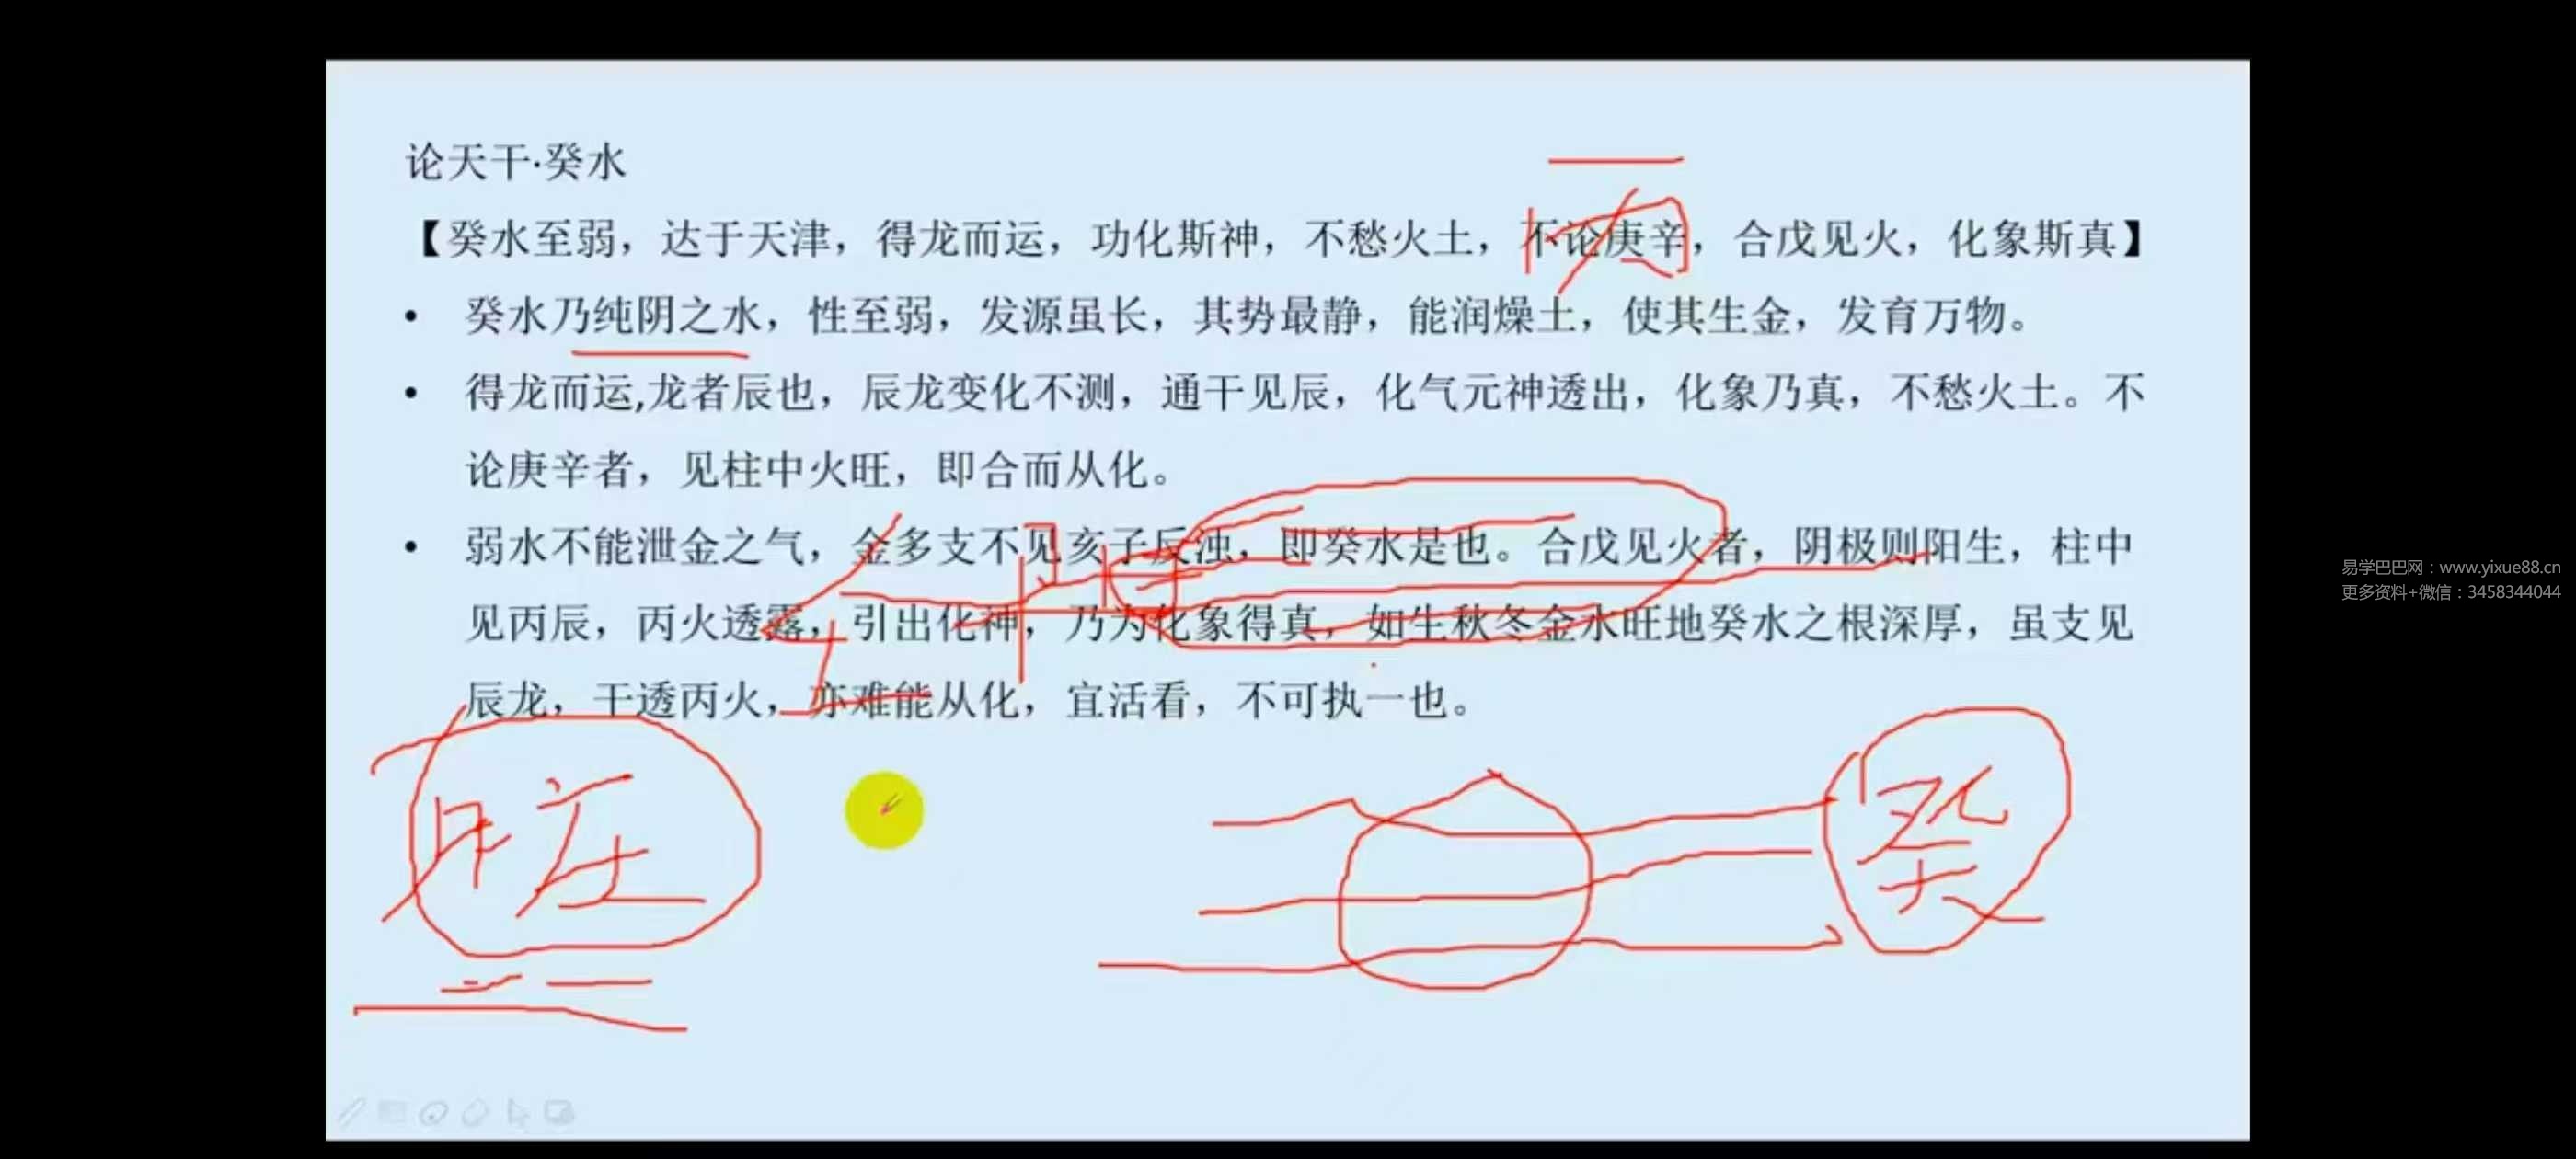 论天干·癸水
【癸水至弱，达于天津，得龙而运，功化斯神，不愁火土，不论庚辛，合戊见火，化象斯真】
• 癸水乃纯阴之水，性至弱，发源虽长，其势最静，能润燥土，使其生金，发育万物。
• 得龙而运,龙者辰也，辰龙变化不测，通干见辰，化气元神透出，化象乃真，不愁火土。不
论庚辛者，见柱中火旺，即合而从化。
• 弱水不能泄金之气，金多支不见亥子反浊，即癸水是也。合戊见火者，阴极则阳生，柱中
见丙辰，丙火透露，引出化神，乃为化象得真，如生秋冬金水旺地癸水之根深厚，虽支见
辰龙，干透丙火，亦难能从化，宜活看，不可执一也。
癸
易学巴巴网：www.yixue88.cn
更多资料+微信：3458344044